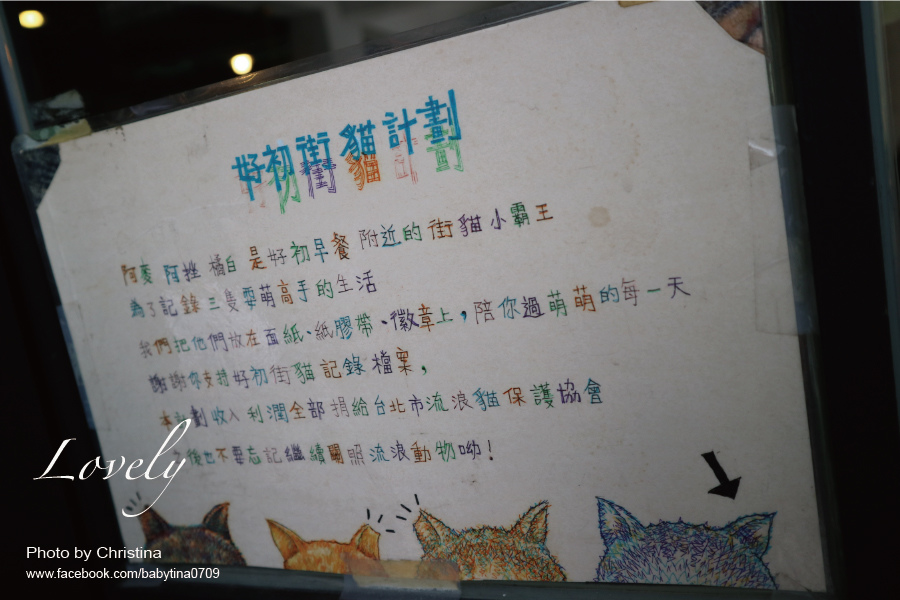 好初街貓計劃
阿麥 阿挫 橘白 是好初早餐 附近的街貓小霸王
為了記錄三隻耍萌高手的生活
我們把他們放在面紙、紙膠帶、徽章上，陪你過萌萌的每一天
謝謝你支持好初街貓記錄檔案，
本計劃收入利潤全部捐給台北市流浪貓保護協會
後也不要忘記繼續關照流浪動物呦！
Lovely
Photo by Christina
www.facebook.com/babytina0709